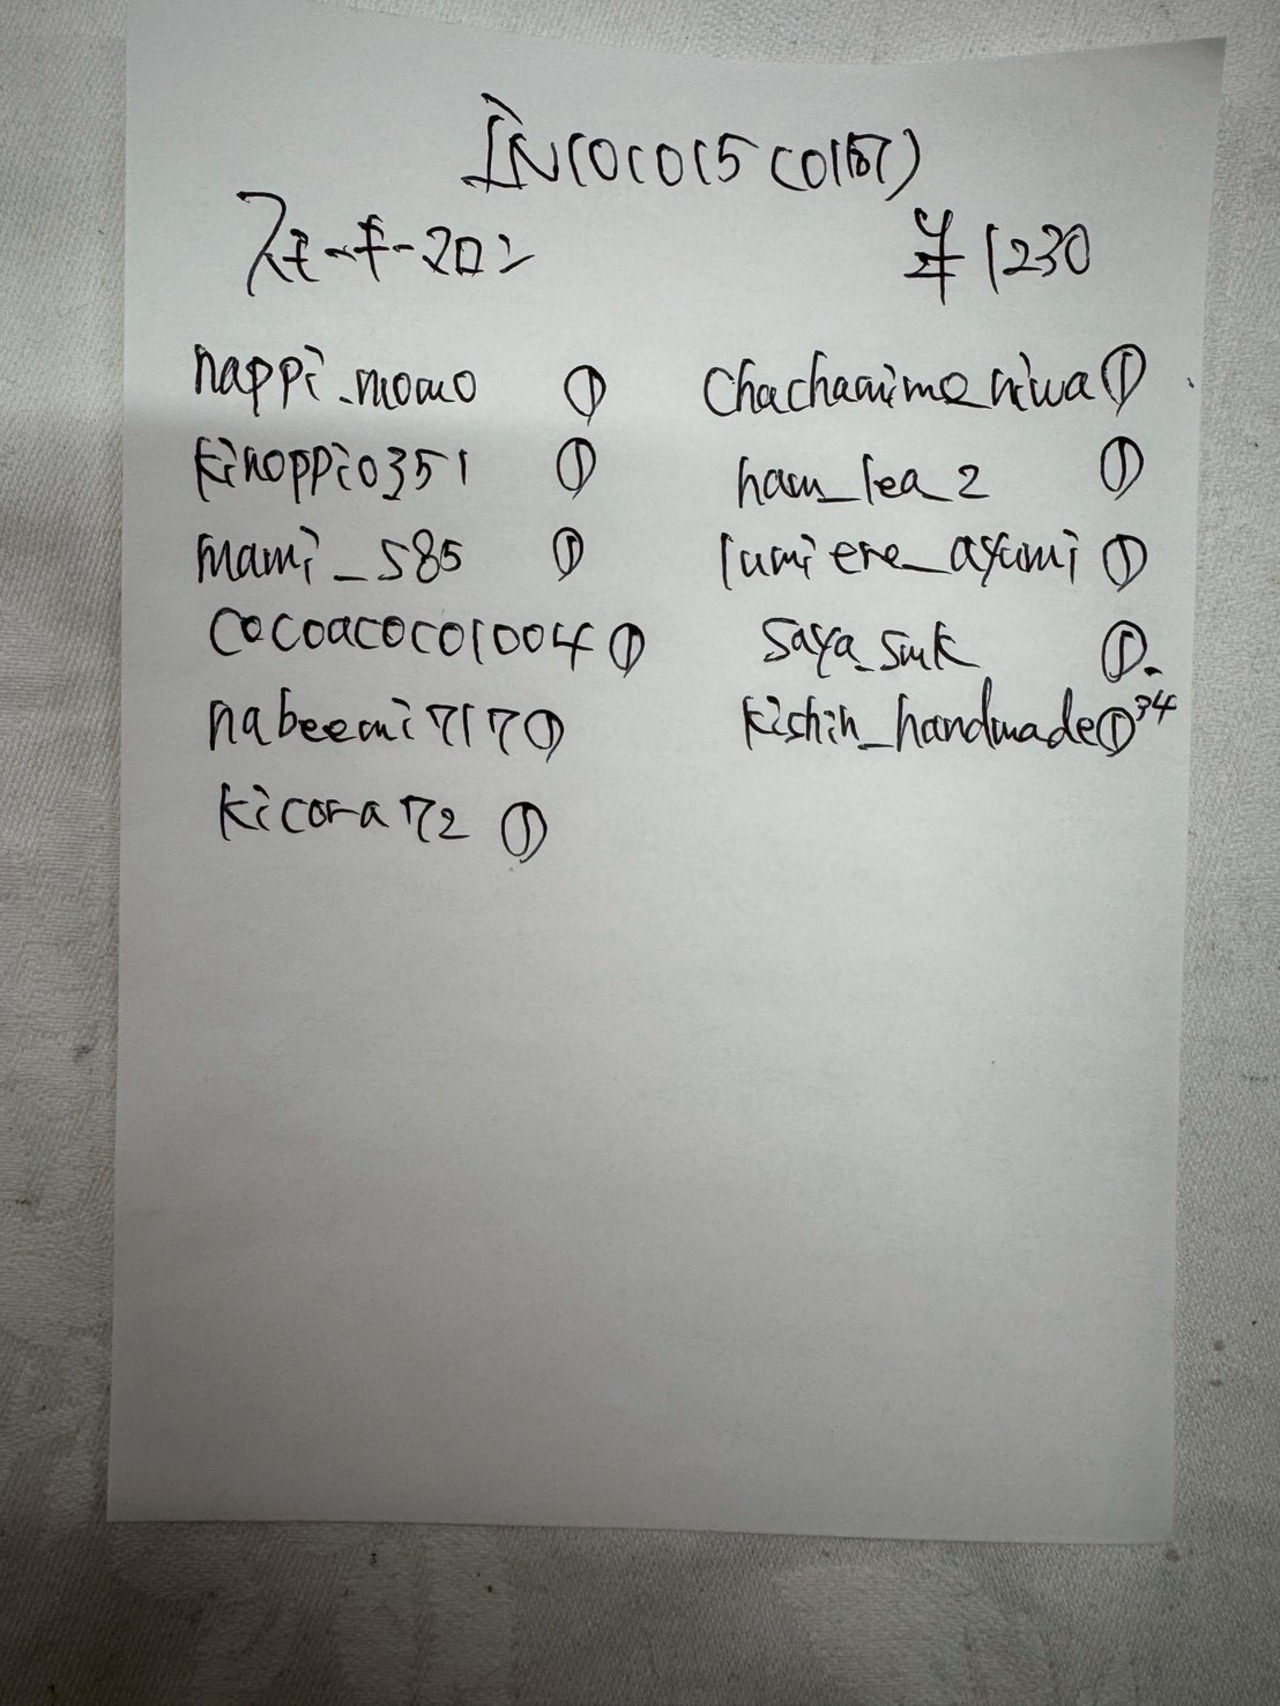 ¥1230
nappi_momo ①
kinoppi0351 ①
mami_585 ①
cocoacoco1004 ①
nabeemi717 ①
kicora72 ①
chachamimo_niwa ①
ham_lea_2 ①
lumiere_ayumi ①
saya_smk ①.
kishin_handmade ① 34